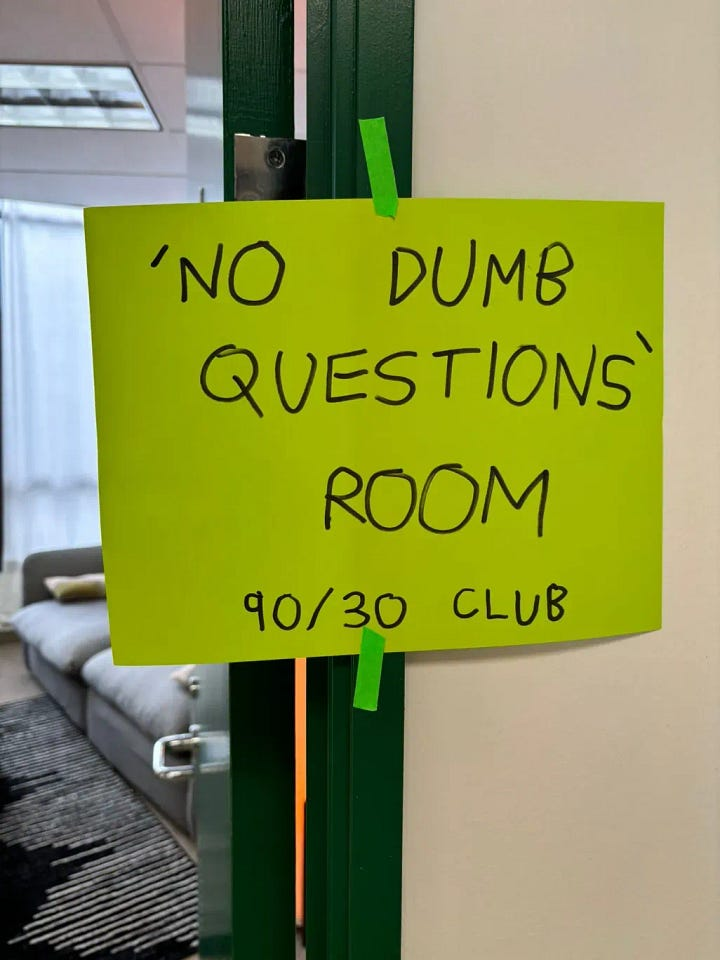 'NO DUMB
QUESTIONS'
ROOM
90/30 CLUB